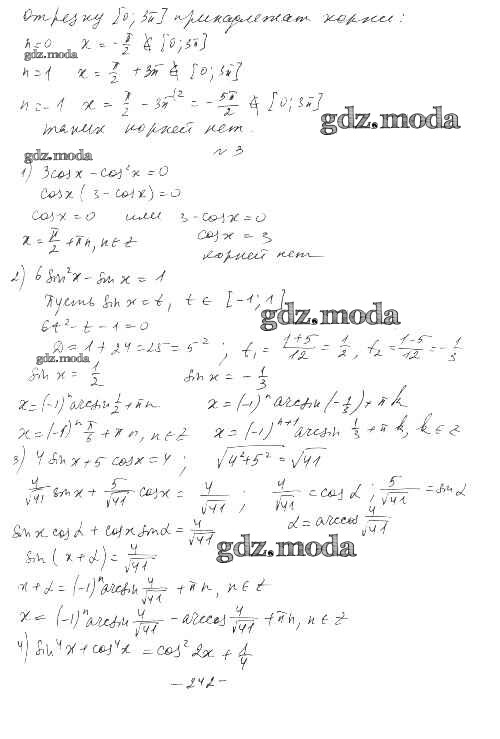 Отрезку [0; 3π] принадлежат корни:
n=0 x = -π/2 ∉ [0; 3π]
gdz.moda
n=1 x = π/2 + 3π ∉ [0; 3π]
n=-1 x = π/2 - 3π = -5π/2 ∉ [0; 3π]
таких корней нет.
gdz.moda
№3
gdz.moda
1) 3cosx - cos²x = 0
cosx (3 - cosx) = 0
cosx = 0 или 3 - cosx = 0
x = π/2 + πn, n∈Z cosx = 3
корней нет
2) 6 sin²x - sin x = 1
Пусть sin x = t, t ∈ [-1; 1]
gdz.moda
6t² - t - 1 = 0
D = 1 + 24 = 25 = 5² ; t₁ = (1+5)/12 = 1/2, t₂ = (1-5)/12 = -1/3
gdz.moda
sin x = 1/2 sin x = -1/3
x = (-1)ⁿ arcsin 1/2 + πn x = (-1)ⁿ arcsin(-1/3) + πk
x = (-1)ⁿ π/6 + πn, n∈Z x = (-1)ⁿ⁺¹ arcsin 1/3 + πk, k∈Z
3) 4 sin x + 5 cosx = 4 ; √(4²+5²) = √41
4/√41 sin x + 5/√41 cosx = 4/√41 ; 4/√41 = cos α ; 5/√41 = sin α
α = arccos 4/√41
sin x cos α + cosx sin α = 4/√41
gdz.moda
sin (x + α) = 4/√41
x + α = (-1)ⁿ arcsin 4/√41 + πn, n∈Z
x = (-1)ⁿ arcsin 4/√41 - arccos 4/√41 + πn, n∈Z
4) sin⁴x + cos⁴x = cos²2x + 1/4
-242-